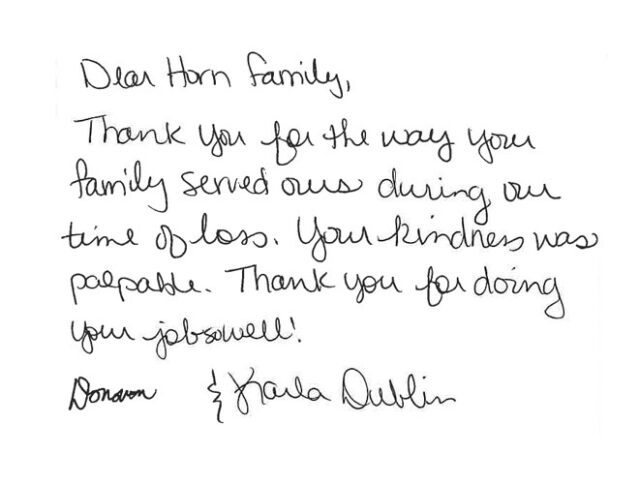 Dear Horn family,
Thank you for the way your
family served ours during our
time of loss. Your kindness was
palpable. Thank you for doing
your job so well!
Donovon & Karla Dublin